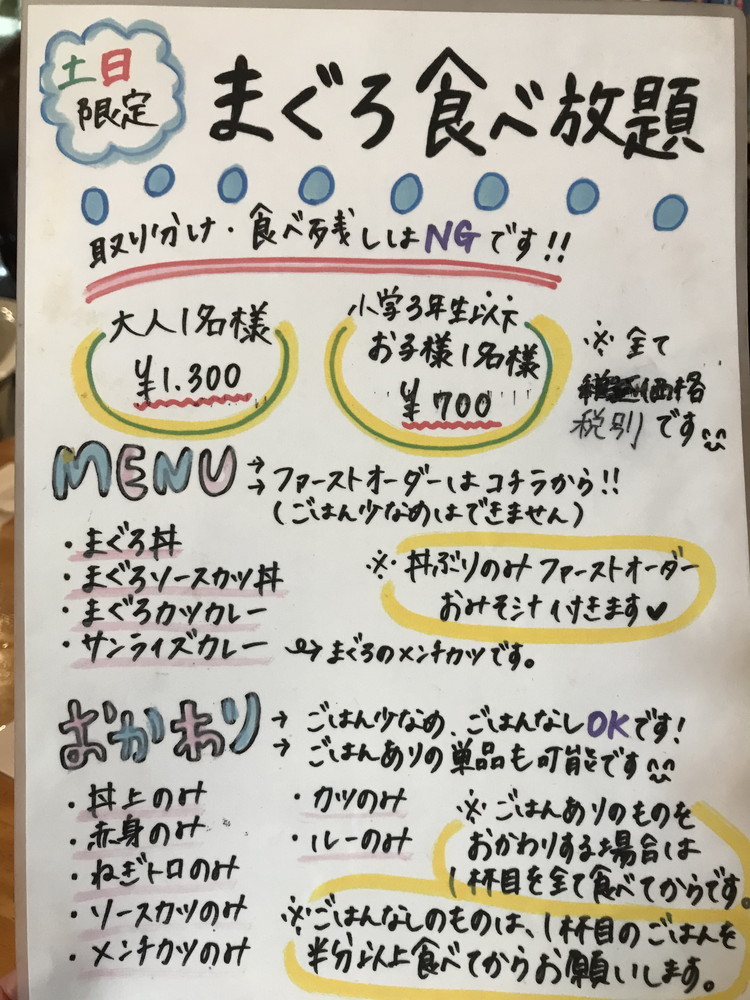 土日
限定
まぐろ食べ放題
取り分け・食べ残しはNGです!!
大人1名様
¥1.300
小学3年生以下
お子様1名様
¥700
※全て
価格
税別です
MENU
→ファーストオーダーはコチラから!!
→(ごはん少なめはできません)
・まぐろ丼
・まぐろソースカツ丼
・まぐろカツカレー
・サンライズカレー → まぐろのメンチカツです。
※丼ぶりのみファーストオーダー
おみそ汁付きます♥
おかわり
→ごはん少なめ、ごはんなしOKです!
→ごはんありの単品も可能です
・丼上のみ
・赤身のみ
・ねぎトロのみ
・ソースカツのみ
・メンチカツのみ
・カツのみ
・ルーのみ
※ごはんありのものを
おかわりする場合は
1杯目を全て食べてからです。
※ごはんなしのものは、1杯目のごはんを
半分以上食べてからお願いします。